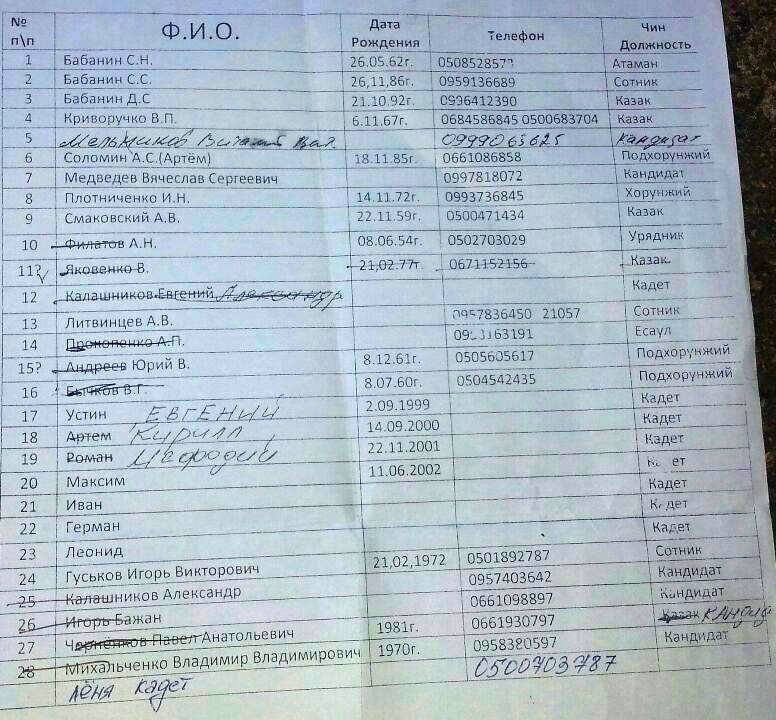 № п\п Ф.И.О. Дата Рождения Телефон Чин Должность
1 Бабанин С.Н. 26.05.62г. 0508528573 Атаман
2 Бабанин С.С. 26,11,86г. 0959136689 Сотник
3 Бабанин Д.С 21.10.92г. 0996412390 Казак
4 Криворучко В.П. 6.11.67г. 0684586845 0500683704 Казак
5 Мельников 0999065625 Кандидат
6 Соломин А.С.(Артём) 18.11.85г. 0661086858 Подхорунжий
7 Медведев Вячеслав Сергеевич 0997818072 Кандидат
8 Плотниченко И.Н. 14.11.72г. 0993736845 Хорунжий
9 Смаковский А.В. 22.11.59г. 0500471434 Казак
10 Филатов А.Н. 08.06.54г. 0502703029 Урядник
11? Яковенко В. 21,02.77г. 0671152156 Казак
12 Калашников Евгений Александр Кадет
13 Литвинцев А.В. 0957836450 21057 Сотник
14 Прокопенко А.П. Есаул
15? Андреев Юрий В. 8.12.61г. 0505605617 Подхорунжий
16 Бычков В.Г. 8.07.60г. 0504542435 Подхорунжий
17 Устин ЕВГЕНИЙ 2.09.1999 Кадет
18 Артем Кирилл 14.09.2000 Кадет
19 Роман Мефодий 22.11.2001 Кадет
20 Максим 11.06.2002 Кадет
21 Иван Кадет
22 Герман Кадет
23 Леонид Кадет
24 Гуськов Игорь Викторович 21,02,1972 0501892787 Сотник
25 Калашников Александр 0957403642 Кандидат
26 Игорь Бажан 0661098897 Кандидат
27 Черненков Павел Анатольевич 1981г. 0661930797 Казак КАНДИД
28 Михальченко Владимир Владимирович 1970г. 0958380597 Кандидат
Лёня Кадет 0500703787